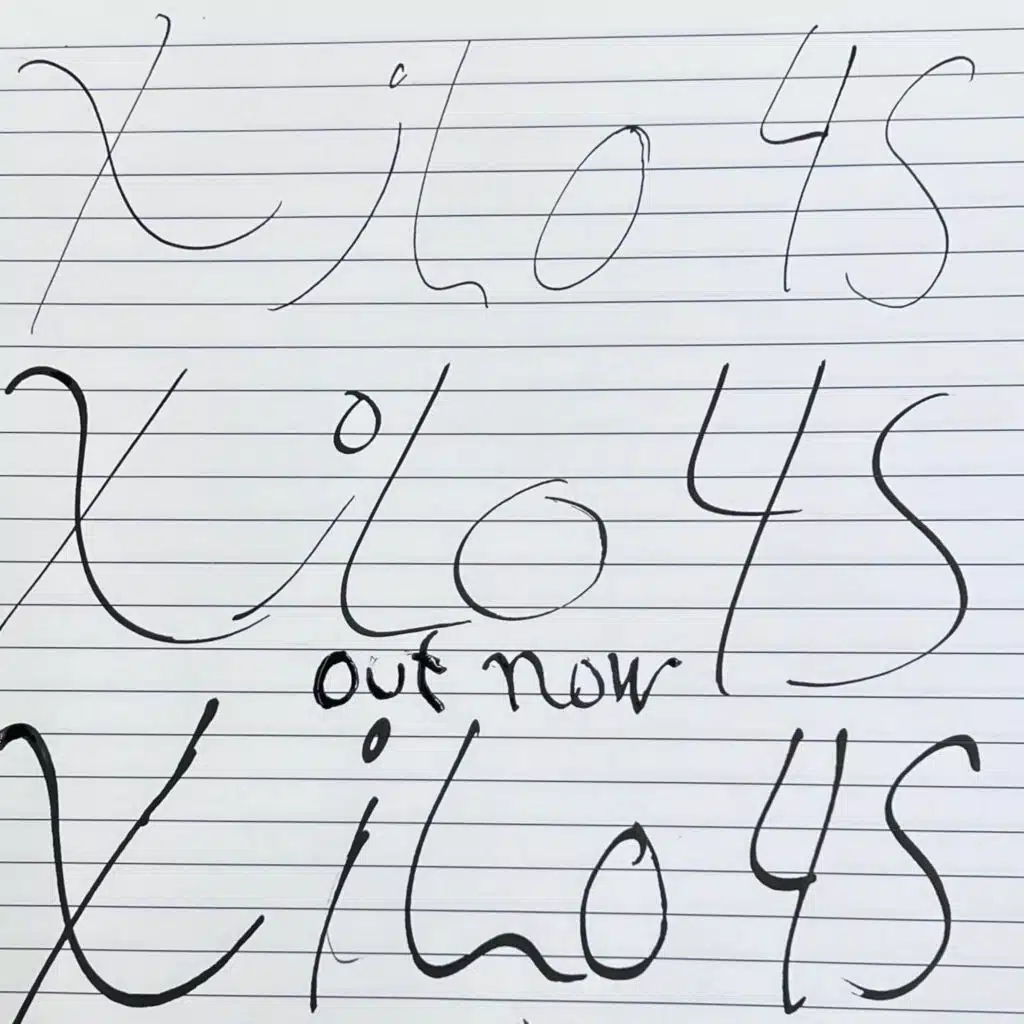 Xilo 4S
Xilo 4S
out now
Xilo 4S